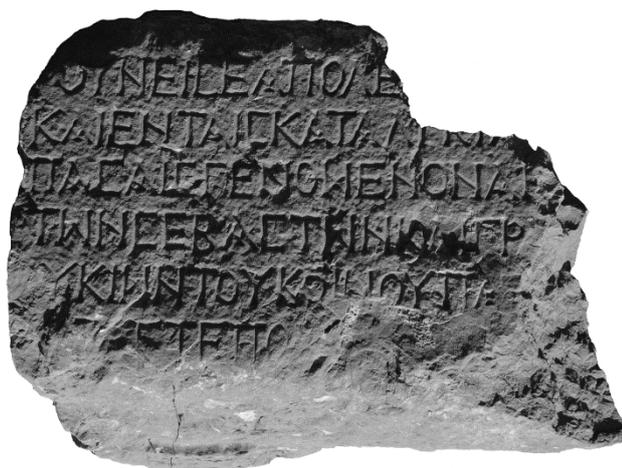 ΟΥΝΕΙCΕΑΠΟΛΕ
ΚΑΙΕΝΤΑΙCΚΑΤΑΛ
ΠΑCΑΙCΓΕΝΟΜΕΝΟΝΑΡ
ΤΩΝCΕΒΑCΤΩΝΚΑΙΓΡ
ΥΚΙΩΝΤΟΥΚΟΙΝΟΥΠΑ
CΤΕΠΟ